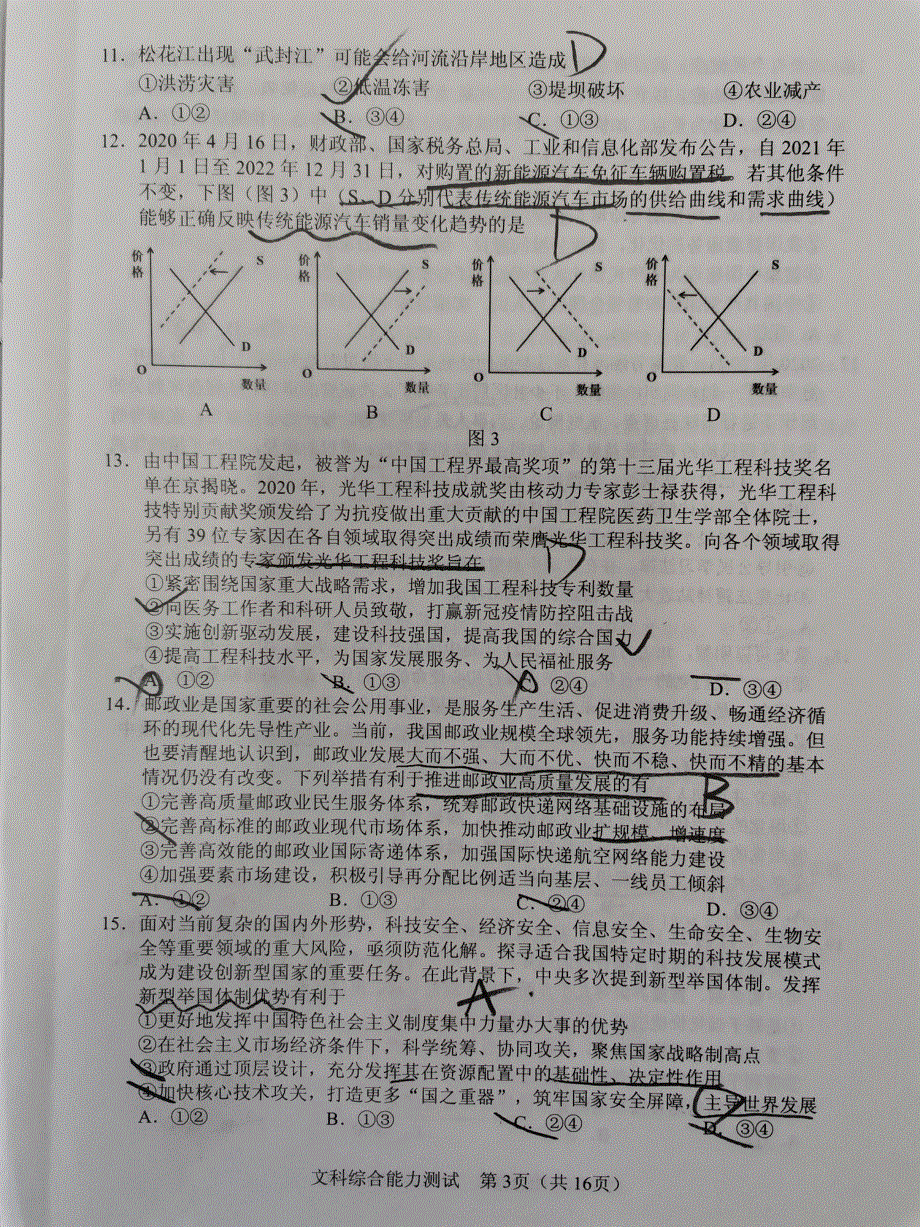 11．松花江出现“武封江”可能会给河流沿岸地区造成 D
①洪涝灾害 ②低温冻害 ③堤坝破坏 ④农业减产
A．①② B．③④ C．①③ D．②④
12．2020年4月16日，财政部、国家税务总局、工业和信息化部发布公告，自2021年
1月1日至2022年12月31日，对购置的新能源汽车免征车辆购置税。若其他条件
不变，下图（图3）中（S、D分别代表传统能源汽车市场的供给曲线和需求曲线）
能够正确反映传统能源汽车销量变化趋势的是 D
价格 S D O 数量
价格 S D O 数量
价格 S D O 数量
价格 S D O 数量
A B C D
图3
13．由中国工程院发起，被誉为“中国工程界最高奖项”的第十三届光华工程科技奖名
单在京揭晓。2020年，光华工程科技成就奖由核动力专家彭士禄获得，光华工程科
技特别贡献奖颁发给了为抗疫做出重大贡献的中国工程院医药卫生学部全体院士，
另有39位专家因在各自领域取得突出成绩而荣膺光华工程科技奖。向各个领域取得
突出成绩的专家颁发光华工程科技奖旨在 D
①紧密围绕国家重大战略需求，增加我国工程科技专利数量
②向医务工作者和科研人员致敬，打赢新冠疫情防控阻击战
③实施创新驱动发展，建设科技强国，提高我国的综合国力
④提高工程科技水平，为国家发展服务、为人民福祉服务
A．①② B．①③ C．②④ D．③④
14．邮政业是国家重要的社会公用事业，是服务生产生活、促进消费升级、畅通经济循
环的现代化先导性产业。当前，我国邮政业规模全球领先，服务功能持续增强。但
也要清醒地认识到，邮政业发展大而不强、大而不优、快而不稳、快而不精的基本
情况仍没有改变。下列举措有利于推进邮政业高质量发展的有 B
①完善高质量邮政业民生服务体系，统筹邮政快递网络基础设施的布局
②完善高标准的邮政业现代市场体系，加快推动邮政业扩规模、增速度
③完善高效能的邮政业国际寄递体系，加强国际快递航空网络能力建设
④加强要素市场建设，积极引导再分配比例适当向基层、一线员工倾斜
A．①② B．①③ C．②④ D．③④
15．面对当前复杂的国内外形势，科技安全、经济安全、信息安全、生命安全、生物安
全等重要领域的重大风险，亟须防范化解。探寻适合我国特定时期的科技发展模式
成为建设创新型国家的重要任务。在此背景下，中央多次提到新型举国体制。发挥
新型举国体制优势有利于 A
①更好地发挥中国特色社会主义制度集中力量办大事的优势
②在社会主义市场经济条件下，科学统筹、协同攻关，聚焦国家战略制高点
③政府通过顶层设计，充分发挥其在资源配置中的基础性、决定性作用
④加快核心技术攻关，打造更多“国之重器”，筑牢国家安全屏障，主导世界发展
A．①② B．①③ C．②④ D．③④
文科综合能力测试 第3页（共16页）